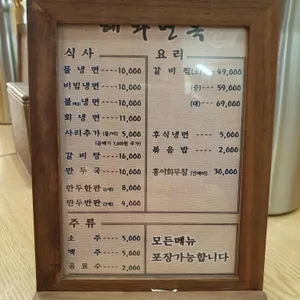 식사
물냉면 ---- 10,000
비빔냉면 ---- 10,000
냉면 --- 10,000
회냉면 ---- 11,000
사리추가 5,000
갈비탕 ---- 16,000
만두국 ---- 10,000
만두한판 8,000
만두반판 4,000
주류
소주 ---- 5,000
맥주 ---- 5,000
음료수 ---- 2,000
요리
갈비찜(소) 49,000
(중) --- 59,000
(대) --- 69,000
후식냉면 ---- 5,000
볶음밥 ---- 2,000
홍어회무침 30,000
모든메뉴
포장가능합니다